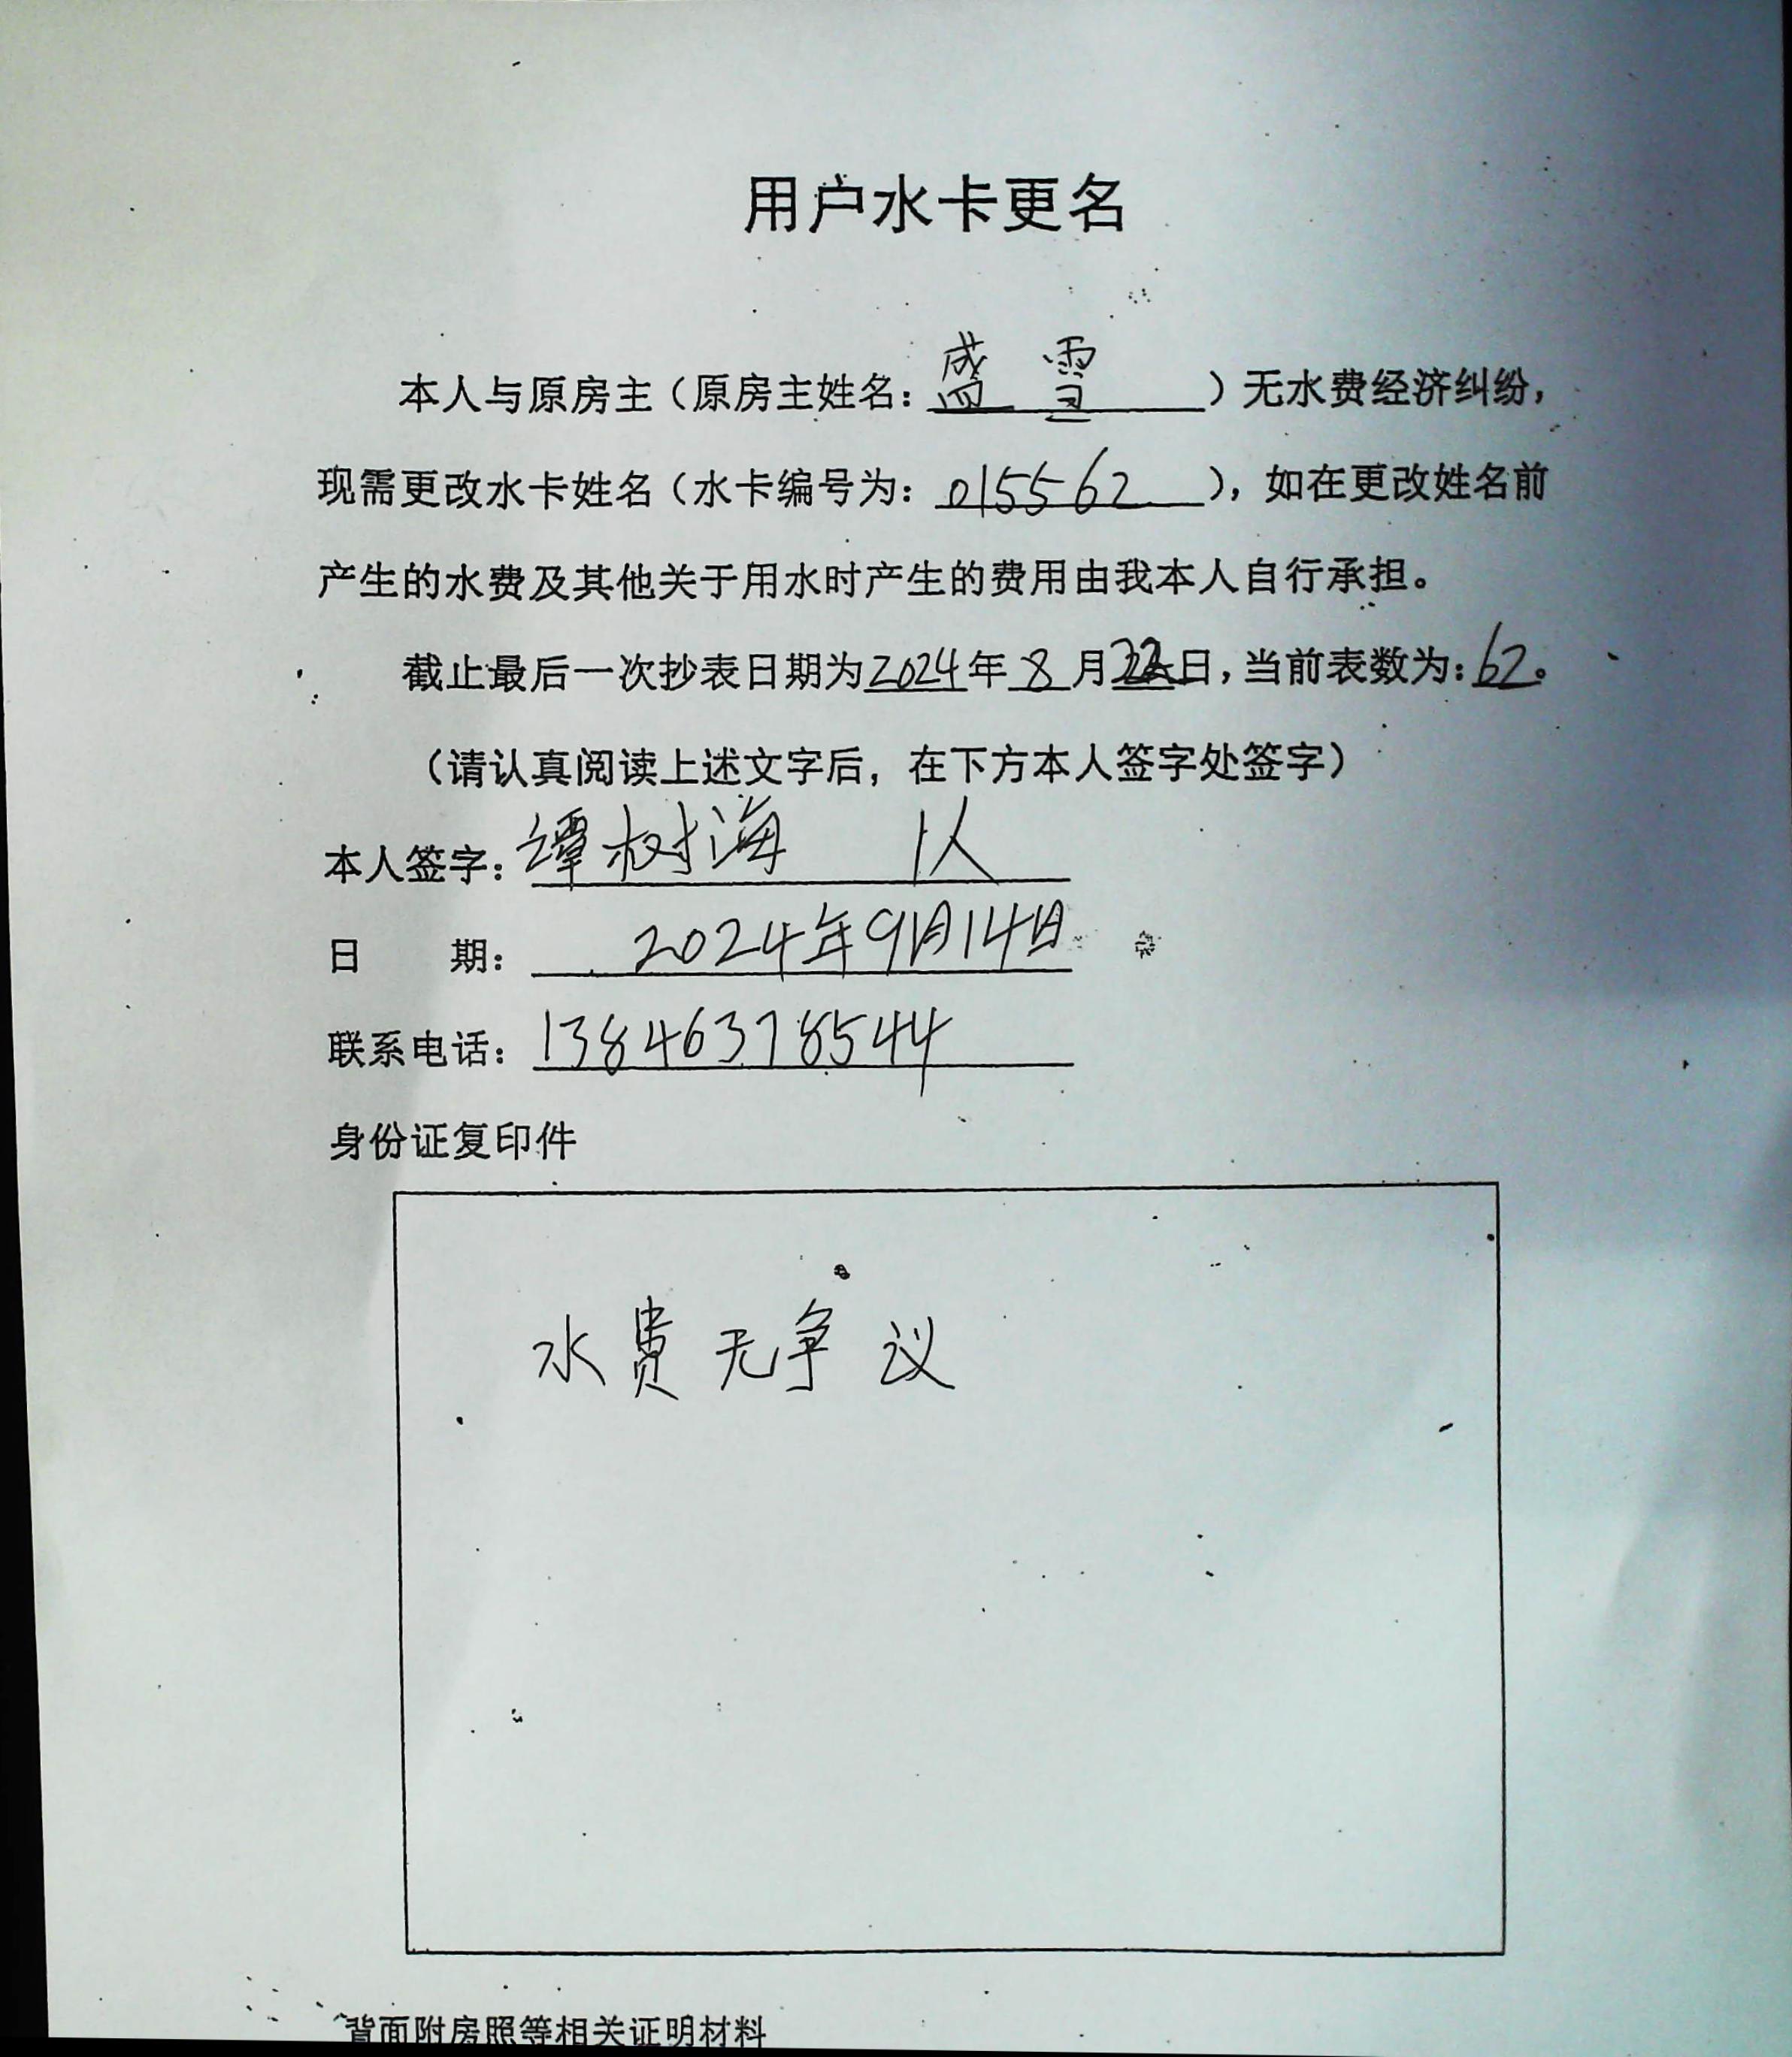 用户水卡更名
本人与原房主（原房主姓名：盛雪）无水费经济纠纷，
现需更改水卡姓名（水卡编号为：015562），如在更改姓名前
产生的水费及其他关于用水时产生的费用由我本人自行承担。
截止最后一次抄表日期为2024年8月22日，当前表数为：62。
（请认真阅读上述文字后，在下方本人签字处签字）
本人签字：谭树海 1人
日 期：2024年9月14日
联系电话：13846378544
身份证复印件
水费无争议
背面附房照等相关证明材料